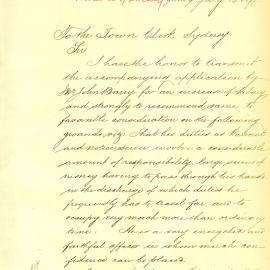 To the Town Clerk Sydney
Sir
I have the honor to transmit
the accompanying application by
Mr John Barry for an increase of salary
and strongly to recommend same to
favorable consideration on the following
grounds, viz: That his duties as
and notice server involve a considerable
amount of responsibility, large sums of
money having to pass through his hands
in the discharge of which duties he
frequently has to travel far and to
occupy very much more than ordinary
time. He is a very energetic and
faithful officer in whom much con-
fidence can be placed.